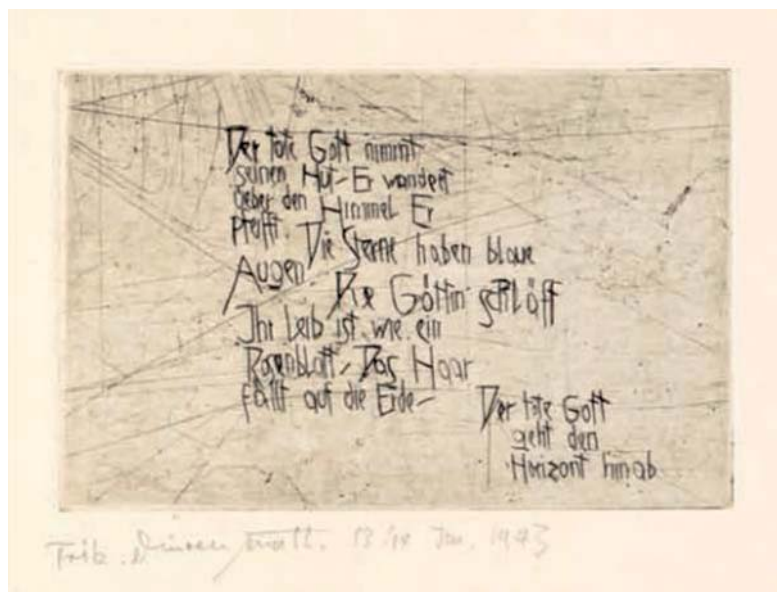 Der tote Gott nimmt
seinen Hut- Er wandert
ueber den Himmel Er
pfeifft. Die Sterne haben blaue
Augen Die Göttin schläft
Ihr Leib ist wie ein
Rosenblatt- Das Haar
fällt auf die Erde-
Der tote Gott
geht den
Horizont hinab
Jan. 1943